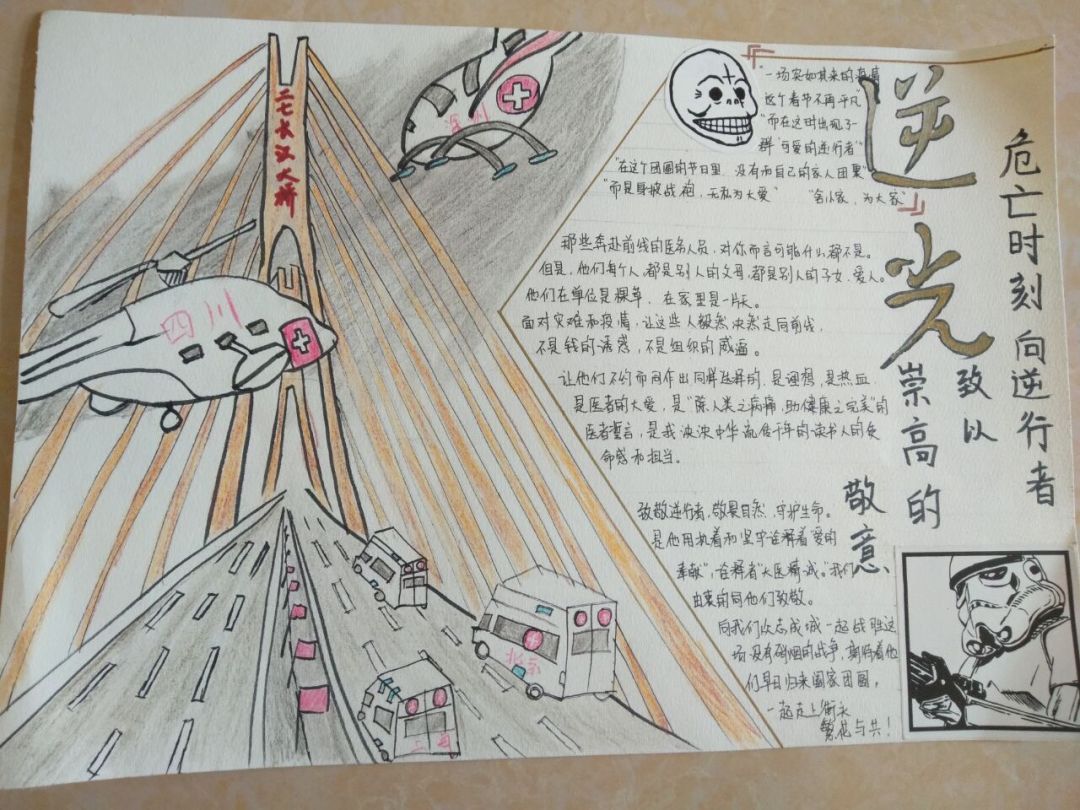 二七长江大桥
四川
深圳
北京
上海
逆光
危亡时刻向逆行者
致以
崇高的
敬意
"一场突如其来的疫情
这个春节不再平凡"
"而在这时出现了一
群"可爱的逆行者"
"在这个团圆的节日里，没有和自己的家人团聚"
"而是身披战袍，无私为大爱" "舍小家，为大家"
那些奔赴前线的医务人员，对你而言可能什么都不是。
但是，他们每个人，都是别人的父母，都是别人的子女、爱人。
他们在单位是棵草，在家里是一片天。
面对灾难和疫情，让这些人毅然决然走向前线，
不是钱的诱惑，不是组织的威逼。
让他们不约而同作出同样选择的，是理想，是热血，
是医者的大爱，是"除人类之病痛，助健康之完美"的
医者誓言，是我泱泱中华流传千年的读书人的使
命感和担当。
致敬逆行者，敬畏自然，守护生命。
是他用执着和坚守诠释着"爱的
奉献"，诠释着"大医精诚。"我们
由衷的向他们致敬。
向我们众志成城一起战胜这
场没有硝烟的战争，期待着他
们早日归来阖家团圆，
一起走上街头
繁花与共！